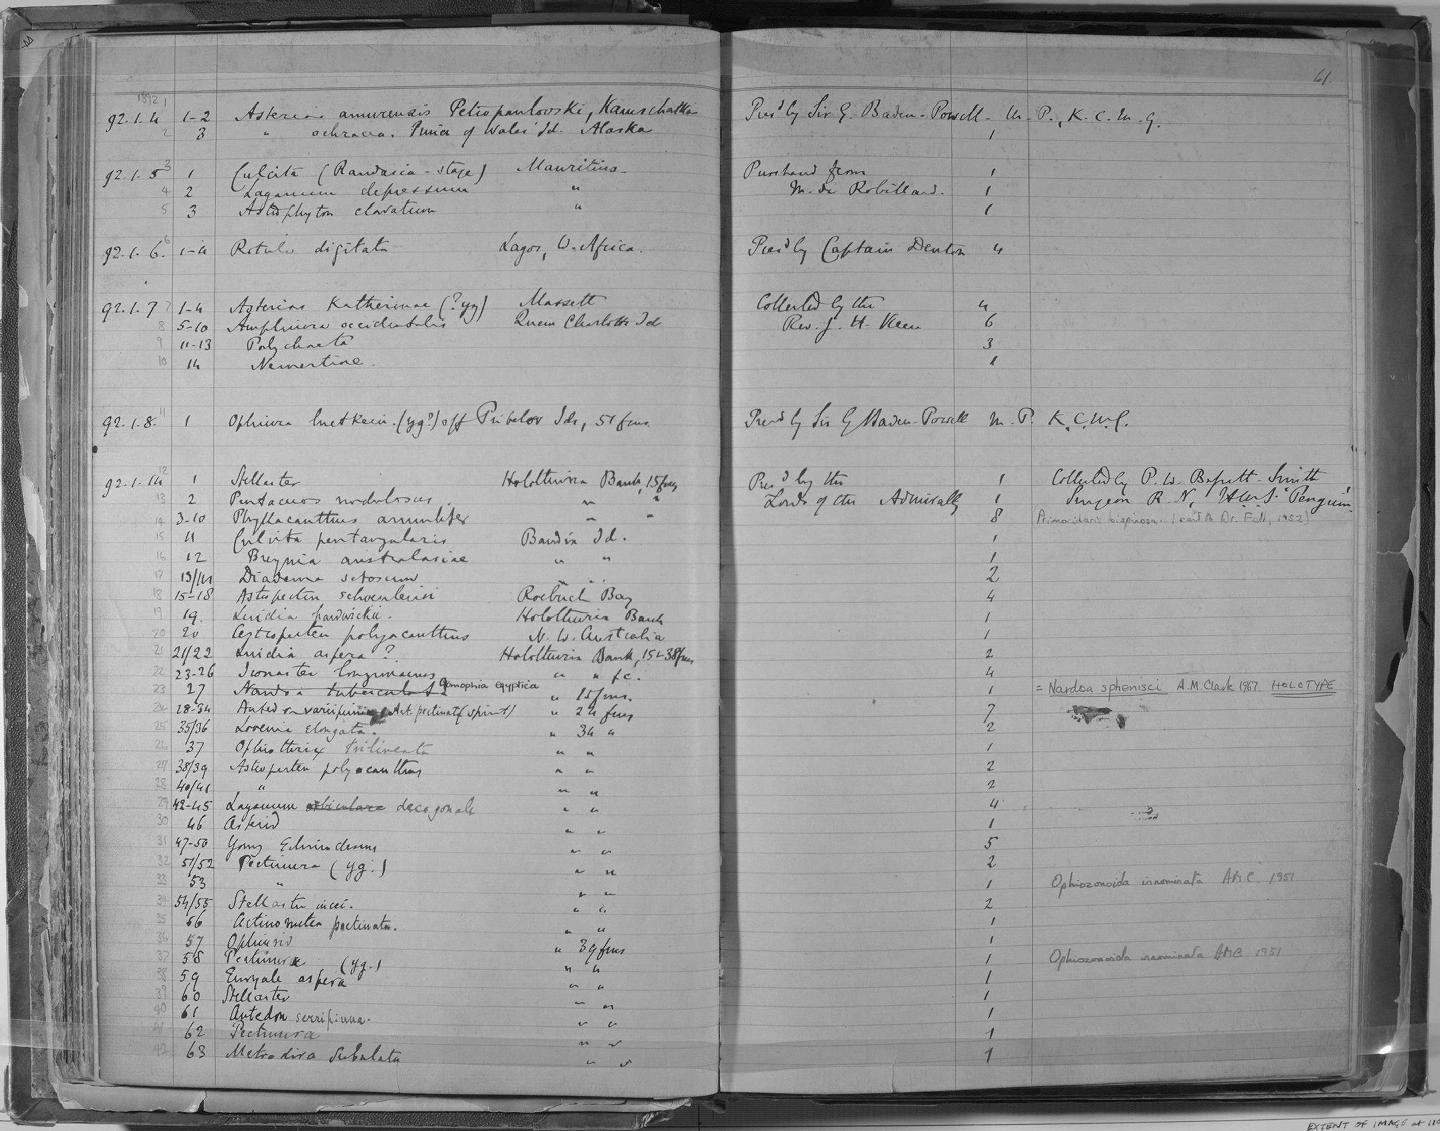 61
1892 1
92.1.4 1-2 Asterias amurensis Petropaulovski, Kamschatka Pres'd by Sir G. Baden-Powell. M. P., K. C. M. G.
2 3 " ochracea. Prince of Wales' Id. Alaska 1
92.1.5 3 1 Culcita (Randasia-stage) Mauritius. Purchased from 1
4 2 Laganum depressum " M. de Robillard. 1
5 3 Astrophyton clavatum " 1
92.1.6. 6 1-4 Rotula digitata Lagos, W. Africa. Pres'd by Captain Denton 4
92.1.7 7 1-4 Asterias Katherinae (? yg) Massett Collected by the 4
8 5-10 Amphiura occidentalis Queen Charlotte Id Rev. J. H. Keen 6
9 11-13 Polychaeta 3
10 14 Nemertine. 1
92.1.8. 11 1 Ophiura luetkeni. (yg?) off Pribelov Ids, 51 fms. Pres'd by Sir G Baden-Powell M. P. K. C. M. G.
92.1.14 12 1 Stellaster Holothuria Bank, 15 fms Pres'd by the 1 Collected by P. W. Bassett-Smith
13 2 Pentaceros nodulosus " " Lords of the Admiralty 1 Surgeon R. N, H.M.S. "Penguin"
14 3-10 Phyllacanthus annulifer " " 8
15 11 Culcita pentangularis Baudin Id. 1
16 12 Breynia australasiae " " 1
17 13/14 Diadema setosum " " 2
18 15-18 Astropecten schoenleini Roebuck Bay 4
19 19. Luidia hardwickii. Holothuria Bank 1
20 20 Astropecten polyacanthus N. W. Australia 1
21 21/22 Luidia aspera ? Holothuria Bank, 15-38 fms 2
22 23-26 Iconaster longimanus " " &c. 4
23 27 Nardoa tuberculata Gomophia egyptica " 15 fms. 1 = Nardoa sphenisci A.M. Clark 1967 HOLOTYPE
24 28-34 Antedon variipinna & Act. pectinata (spirit) " 24 fms 7
25 35/36 Lovenia elongata. " 34 " 2
26 37 Ophiothrix trilineata " " 1
27 38/39 Astropecten polyacanthus " " 2
28 40/41 " " " 2
29 42-45 Laganum orbiculare decagonale " " 4
30 46 Asterid " " 1
31 47-50 Young Echinoderms " " 5
32 51/52 Pectinura (yg.) " " 2
33 53 " " " 1 Ophiozonoida innominata AMC 1951
34 54/55 Stellaster incei. " " 2
35 56 Actinometra pectinata. " " 1
36 57 Ophiurid " 39 fms 1
37 58 Pectinura (yg.) " " 1 Ophiozonoida innominata AMC 1951
38 59 Euryale aspera " " 1
39 60 Stellaster " " 1
40 61 Antedon serripinna. " " 1
41 62 Pectinura " " 1
42 63 Metrodira subulata " " 1
EXTENT OF IMAGE at 110